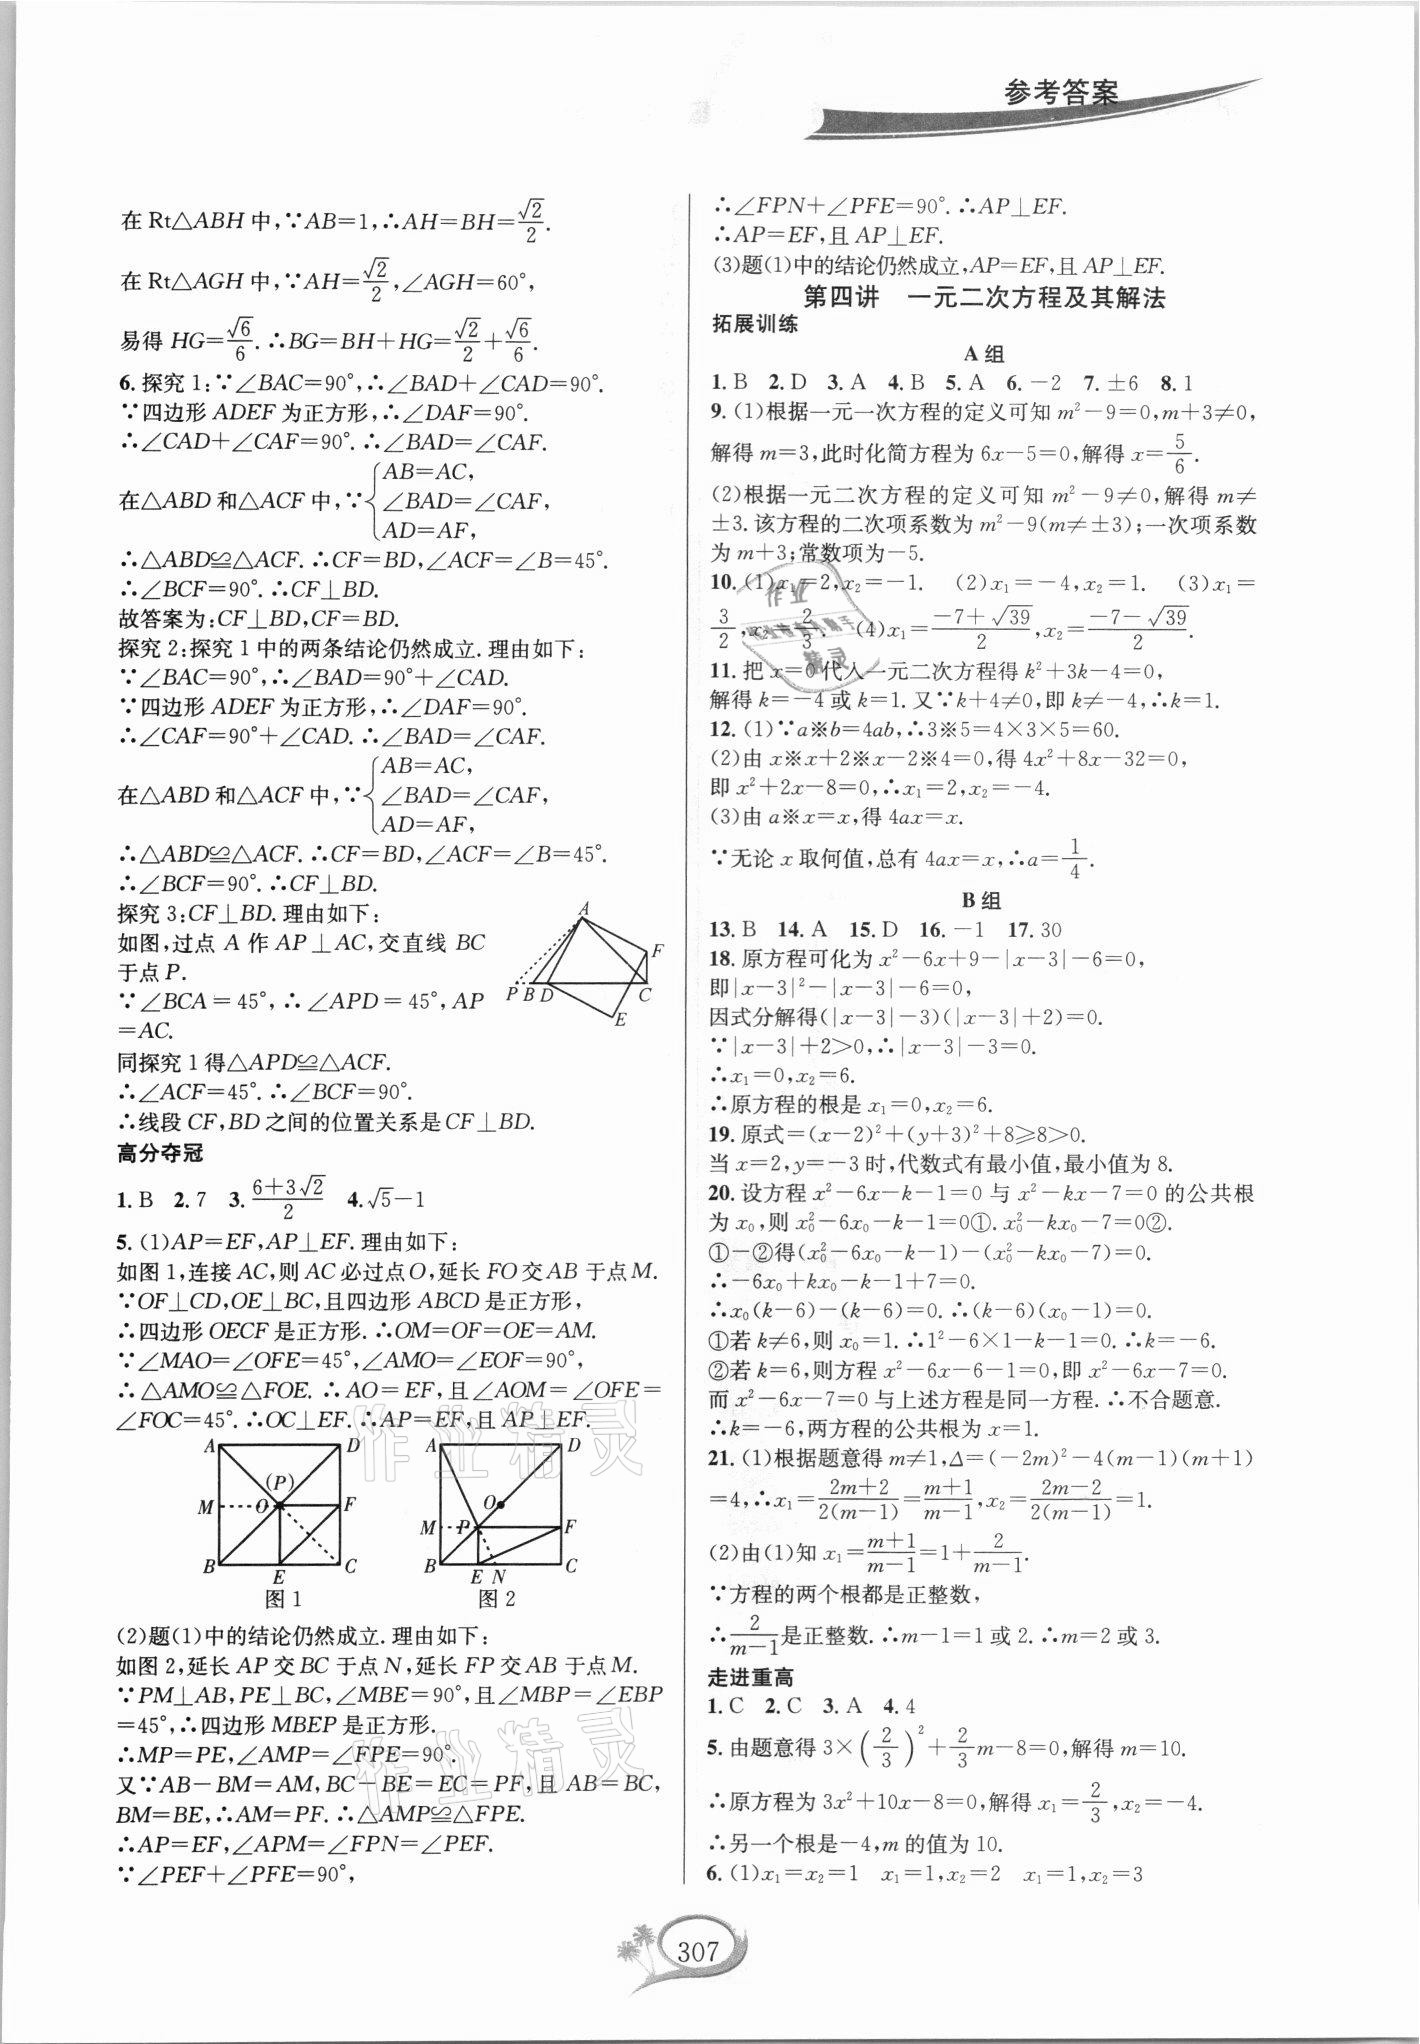 参考答案
在 Rt△ABH 中,∵AB=1,∴AH=BH=√2/2.
在 Rt△AGH 中,∵AH=√2/2,∠AGH=60°,
易得 HG=√6/6. ∴BG=BH+HG=√2/2+√6/6.
6. 探究 1:∵∠BAC=90°,∴∠BAD+∠CAD=90°.
∵四边形 ADEF 为正方形,∴∠DAF=90°.
∴∠CAD+∠CAF=90°. ∴∠BAD=∠CAF.
在△ABD 和△ACF 中,∵{AB=AC,
∠BAD=∠CAF,
AD=AF,
∴△ABD≌△ACF. ∴CF=BD,∠ACF=∠B=45°.
∴∠BCF=90°. ∴CF⊥BD.
故答案为:CF⊥BD,CF=BD.
探究 2:探究 1 中的两条结论仍然成立. 理由如下:
∵∠BAC=90°,∴∠BAD=90°+∠CAD.
∵四边形 ADEF 为正方形,∴∠DAF=90°.
∴∠CAF=90°+∠CAD. ∴∠BAD=∠CAF.
在△ABD 和△ACF 中,∵{AB=AC,
∠BAD=∠CAF,
AD=AF,
∴△ABD≌△ACF. ∴CF=BD,∠ACF=∠B=45°.
∴∠BCF=90°. ∴CF⊥BD.
探究 3:CF⊥BD. 理由如下:
如图,过点 A 作 AP⊥AC,交直线 BC
于点 P.
∵∠BCA=45°,∴∠APD=45°,AP
=AC.
A
F
P B D C
E
同探究 1 得△APD≌△ACF.
∴∠ACF=45°. ∴∠BCF=90°.
∴线段 CF,BD 之间的位置关系是 CF⊥BD.
高分夺冠
1. B 2. 7 3. (6+3√2)/2 4. √5-1
5. (1)AP=EF,AP⊥EF. 理由如下:
如图 1,连接 AC,则 AC 必过点 O,延长 FO 交 AB 于点 M.
∵OF⊥CD,OE⊥BC,且四边形 ABCD 是正方形,
∴四边形 OECF 是正方形. ∴OM=OF=OE=AM.
∵∠MAO=∠OFE=45°,∠AMO=∠EOF=90°,
∴△AMO≌△FOE. ∴AO=EF,且∠AOM=∠OFE=
∠FOC=45°. ∴OC⊥EF. ∴AP=EF,且 AP⊥EF.
A D A D
(P)
M O F O
M P F
B E C B E N C
图 1 图 2
(2)题(1)中的结论仍然成立. 理由如下:
如图 2,延长 AP 交 BC 于点 N,延长 FP 交 AB 于点 M.
∵PM⊥AB,PE⊥BC,∠MBE=90°,且∠MBP=∠EBP
=45°,∴四边形 MBEP 是正方形.
∴MP=PE,∠AMP=∠FPE=90°.
又∵AB-BM=AM,BC-BE=EC=PF,且 AB=BC,
BM=BE,∴AM=PF. ∴△AMP≌△FPE.
∴AP=EF,∠APM=∠FPN=∠PEF.
∵∠PEF+∠PFE=90°,
∴∠FPN+∠PFE=90°. ∴AP⊥EF.
∴AP=EF,且 AP⊥EF.
(3)题(1)中的结论仍然成立,AP=EF,且 AP⊥EF.
第四讲 一元二次方程及其解法
拓展训练
A 组
1. B 2. D 3. A 4. B 5. A 6. -2 7. ±6 8. 1
9. (1)根据一元一次方程的定义可知 m²-9=0,m+3≠0,
解得 m=3,此时化简方程为 6x-5=0,解得 x=5/6.
(2)根据一元二次方程的定义可知 m²-9≠0,解得 m≠
±3. 该方程的二次项系数为 m²-9(m≠±3);一次项系数
为 m+3;常数项为-5.
10. (1)x₁=2,x₂=-1. (2)x₁=-4,x₂=1. (3)x₁=
3/2,x₂=2/3. (4)x₁=(-7+√39)/2,x₂=(-7-√39)/2.
11. 把 x=0 代入一元二次方程得 k²+3k-4=0,
解得 k=-4 或 k=1. 又∵k+4≠0,即 k≠-4,∴k=1.
12. (1)∵a※b=4ab,∴3※5=4×3×5=60.
(2)由 x※x+2※x-2※4=0,得 4x²+8x-32=0,
即 x²+2x-8=0,∴x₁=2,x₂=-4.
(3)由 a※x=x,得 4ax=x.
∵无论 x 取何值,总有 4ax=x,∴a=1/4.
B 组
13. B 14. A 15. D 16. -1 17. 30
18. 原方程可化为 x²-6x+9-|x-3|-6=0,
即|x-3|²-|x-3|-6=0,
因式分解得(|x-3|-3)(|x-3|+2)=0.
∵|x-3|+2>0,∴|x-3|-3=0.
∴x₁=0,x₂=6.
∴原方程的根是 x₁=0,x₂=6.
19. 原式=(x-2)²+(y+3)²+8≥8>0.
当 x=2,y=-3 时,代数式有最小值,最小值为 8.
20. 设方程 x²-6x-k-1=0 与 x²-kx-7=0 的公共根
为 x₀,则 x₀²-6x₀-k-1=0①. x₀²-kx₀-7=0②.
①-②得(x₀²-6x₀-k-1)-(x₀²-kx₀-7)=0.
∴-6x₀+kx₀-k-1+7=0.
∴x₀(k-6)-(k-6)=0. ∴(k-6)(x₀-1)=0.
①若 k≠6,则 x₀=1. ∴1²-6×1-k-1=0. ∴k=-6.
②若 k=6,则方程 x²-6x-6-1=0,即 x²-6x-7=0.
而 x²-6x-7=0 与上述方程是同一方程. ∴不合题意.
∴k=-6,两方程的公共根为 x=1.
21. (1)根据题意得 m≠1,Δ=(-2m)²-4(m-1)(m+1)
=4,∴x₁=(2m+2)/2(m-1)=(m+1)/(m-1),x₂=(2m-2)/2(m-1)=1.
(2)由(1)知 x₁=(m+1)/(m-1)=1+2/(m-1).
∵方程的两个根都是正整数,
∴2/(m-1)是正整数. ∴m-1=1 或 2. ∴m=2 或 3.
走进重高
1. C 2. C 3. A 4. 4
5. 由题意得 3×(2/3)²+2/3m-8=0,解得 m=10.
∴原方程为 3x²+10x-8=0,解得 x₁=2/3,x₂=-4.
∴另一个根是-4,m 的值为 10.
6. (1)x₁=x₂=1 x₁=1,x₂=2 x₁=1,x₂=3
307
作业精灵
作业精灵